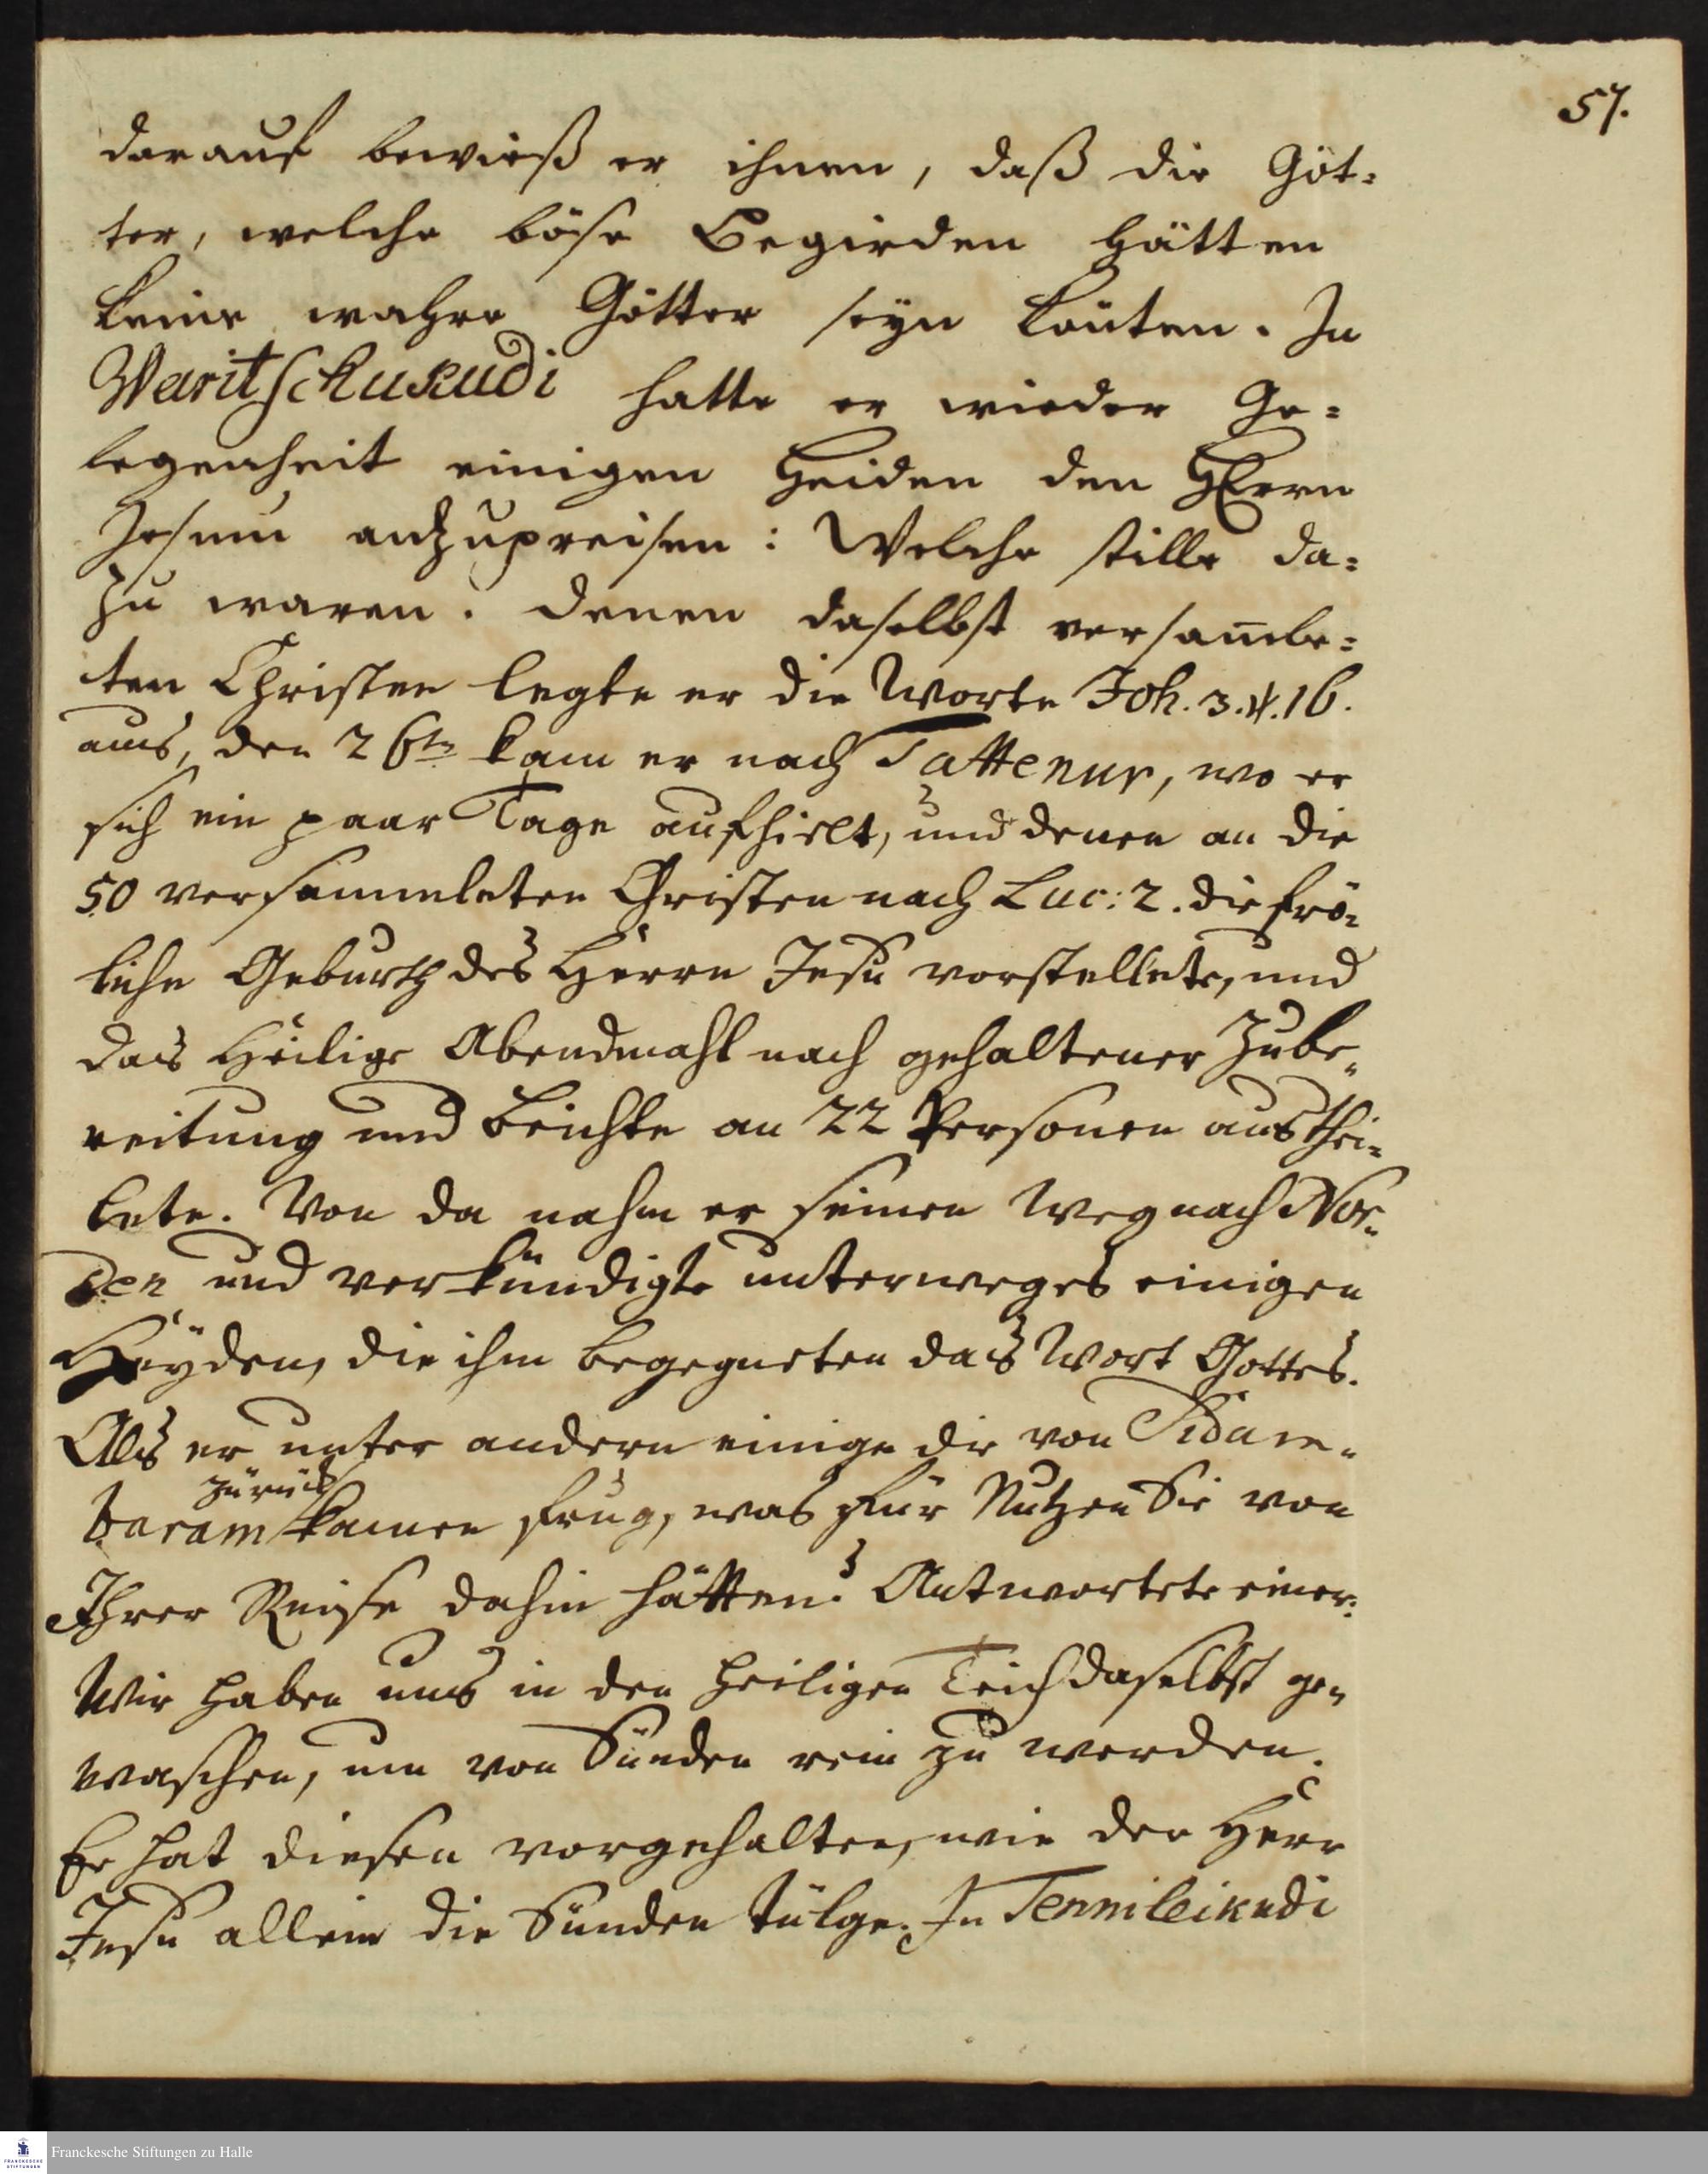 57.
darauf bewieß er ihnen, daß die Göt=
ter, welche böse Begirden hätten
keine wahre Götter seyn könten. In
Waritschukudi hatte er wieder Ge=
legenheit einigen Heiden den HErrn
Jesum anzupreisen: Welche stille da=
zu waren. Denen daselbst versamle=
ten Christen legte er die Worte Joh. 3. ℣. 16.
aus, den 26ten kam er nach Tattenur, wo er
sich ein paar Tage aufhielt, und denen an die
50 versammleten Christen nach Luc: 2. die frö=
liche Geburth des Herrn Jesu vorstellete, und
das Heilige Abendmahl nach gehaltener Zube=
reitung und Beichte an 22 Personen austhei=
lete. Von da nahm er seinen Weg nach Nor=
den und verkündigte unterweges einigen
Heyden, die ihm begegneten das Wort Gottes.
Als er unter andern einige die von Sidam=
zurück
baram kamen frug, was für Nutzen Sie von
Ihrer Reise dahin hätten? Antwortete einer:
Wir haben uns in den heiligen Teich daselbst ge=
waschen, um von Sünden rein zu werden.
Er hat diesen vorgehalten, wie der Herr
Jesu allein die Sünden tülge. In Tennileikudi
Franckesche Stiftungen zu Halle